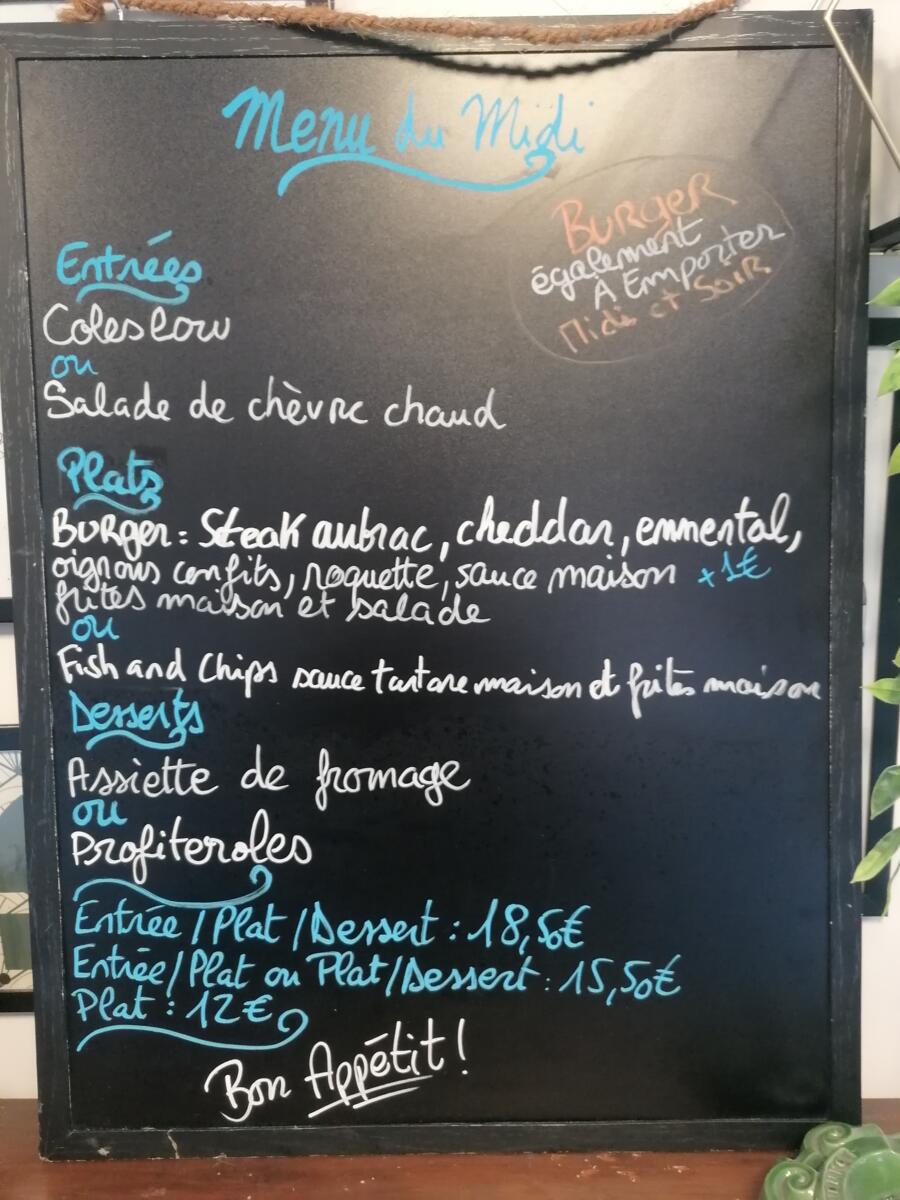 Menu du Midi
BURGER
également
A Emporter
Midi et Soir
Entrées
Coleslow
ou
Salade de chèvre chaud
Plats
Burger : Steak aubrac, cheddar, emmental,
oignons confits, roquette, sauce maison +1€
frites maison et salade
ou
Fish and Chips sauce tartare maison et frites maison
Desserts
Assiette de fromage
ou
Profiteroles
Entrée/Plat/Dessert : 18,50€
Entrée/Plat ou Plat/Dessert : 15,50€
Plat : 12€
Bon Appétit !